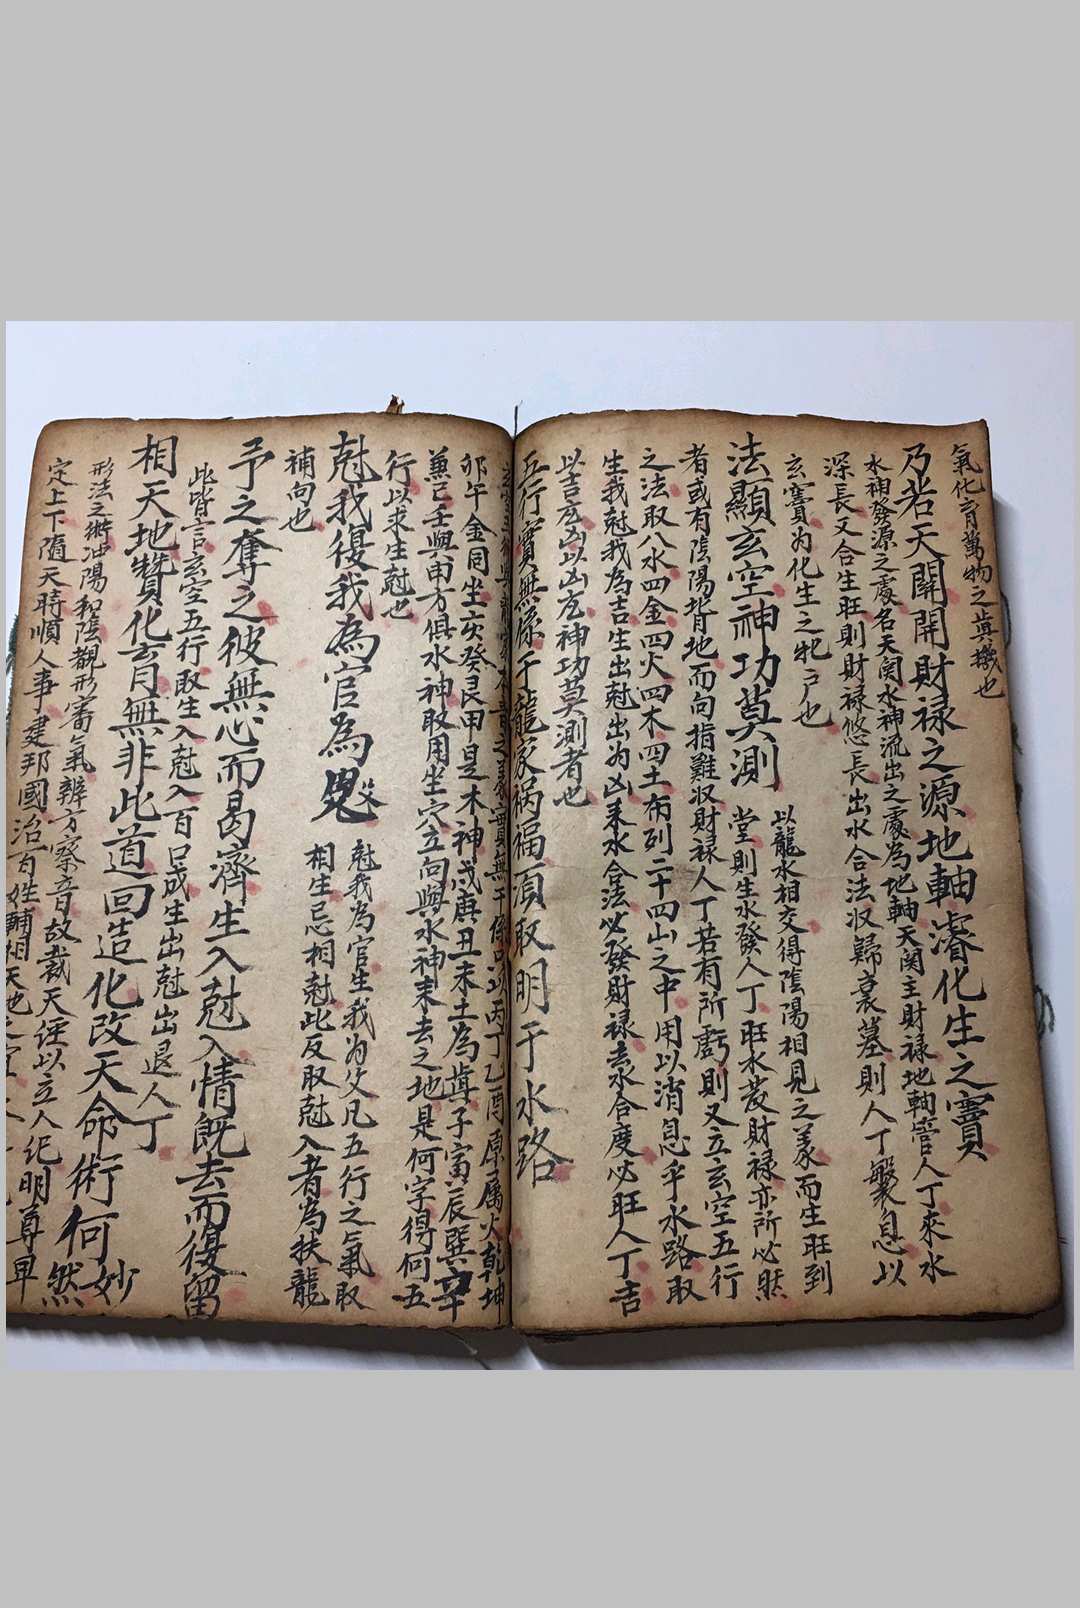 氣化育萬物之真機也
乃若天關開財祿之源地軸濬化生之竇
水神發源之處名天関水神流出之處為地軸天関主財祿地軸管人丁來水
深長又合生旺則財祿悠長出水合法収歸衰墓則人丁繁息以
玄竇為化生之牝戶也
法顯玄空神功莫測
以龍水相交得陰陽相見之義而生旺到
堂則生水發人丁旺水發財祿亦所必然
者或有陰陽背地而向指難収財祿人丁若有所虧則又立玄空五行
之法取八水四金四火四木四土布列二十四山之中用以消息乎水路取
生我尅我為吉生出尅出为凶来水合法必發財祿去水合度必旺人丁吉
以吉應凶以凶應神功莫測者也
五行實無係于龍家祸福須取明于水路
卯午金同坐亥癸艮甲是木神戌庚丑未土為真子寅辰巽辛
兼己壬與申方俱水神取用坐穴立向與水神来去之地是何字得何五
行以求生尅也
尅我復我為官為鬼
尅我為官生我为父凡五行之氣取
相生忌相尅此反取尅入者為扶龍
補向也
予之奪之彼無心而曷濟生入尅入情旣去而復留
此皆言玄空五行取生入尅入百口成生出尅出退人丁
相天地贊化育無非此道回造化改天命術何妙然
形法之術冲陽和陰觀形審氣辨方察音故裁天任以立人纪明尊卑
定上下隨天時順人事建邦國治百姓輔相天地之宜